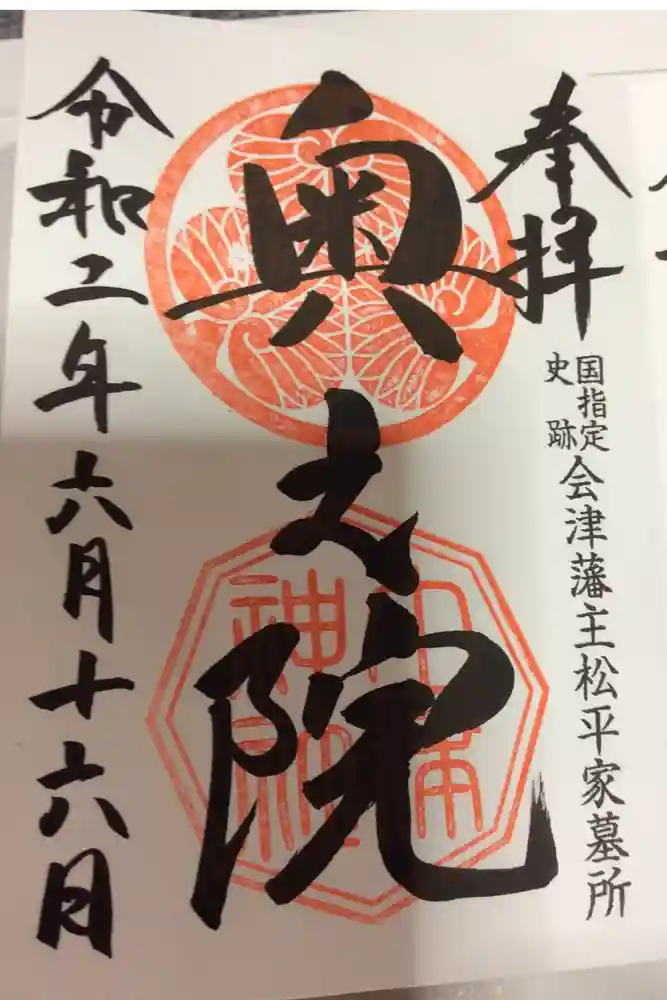 奉拝
国指定
史跡
会津藩主松平家墓所
奥之院
神社
令和二年六月十六日